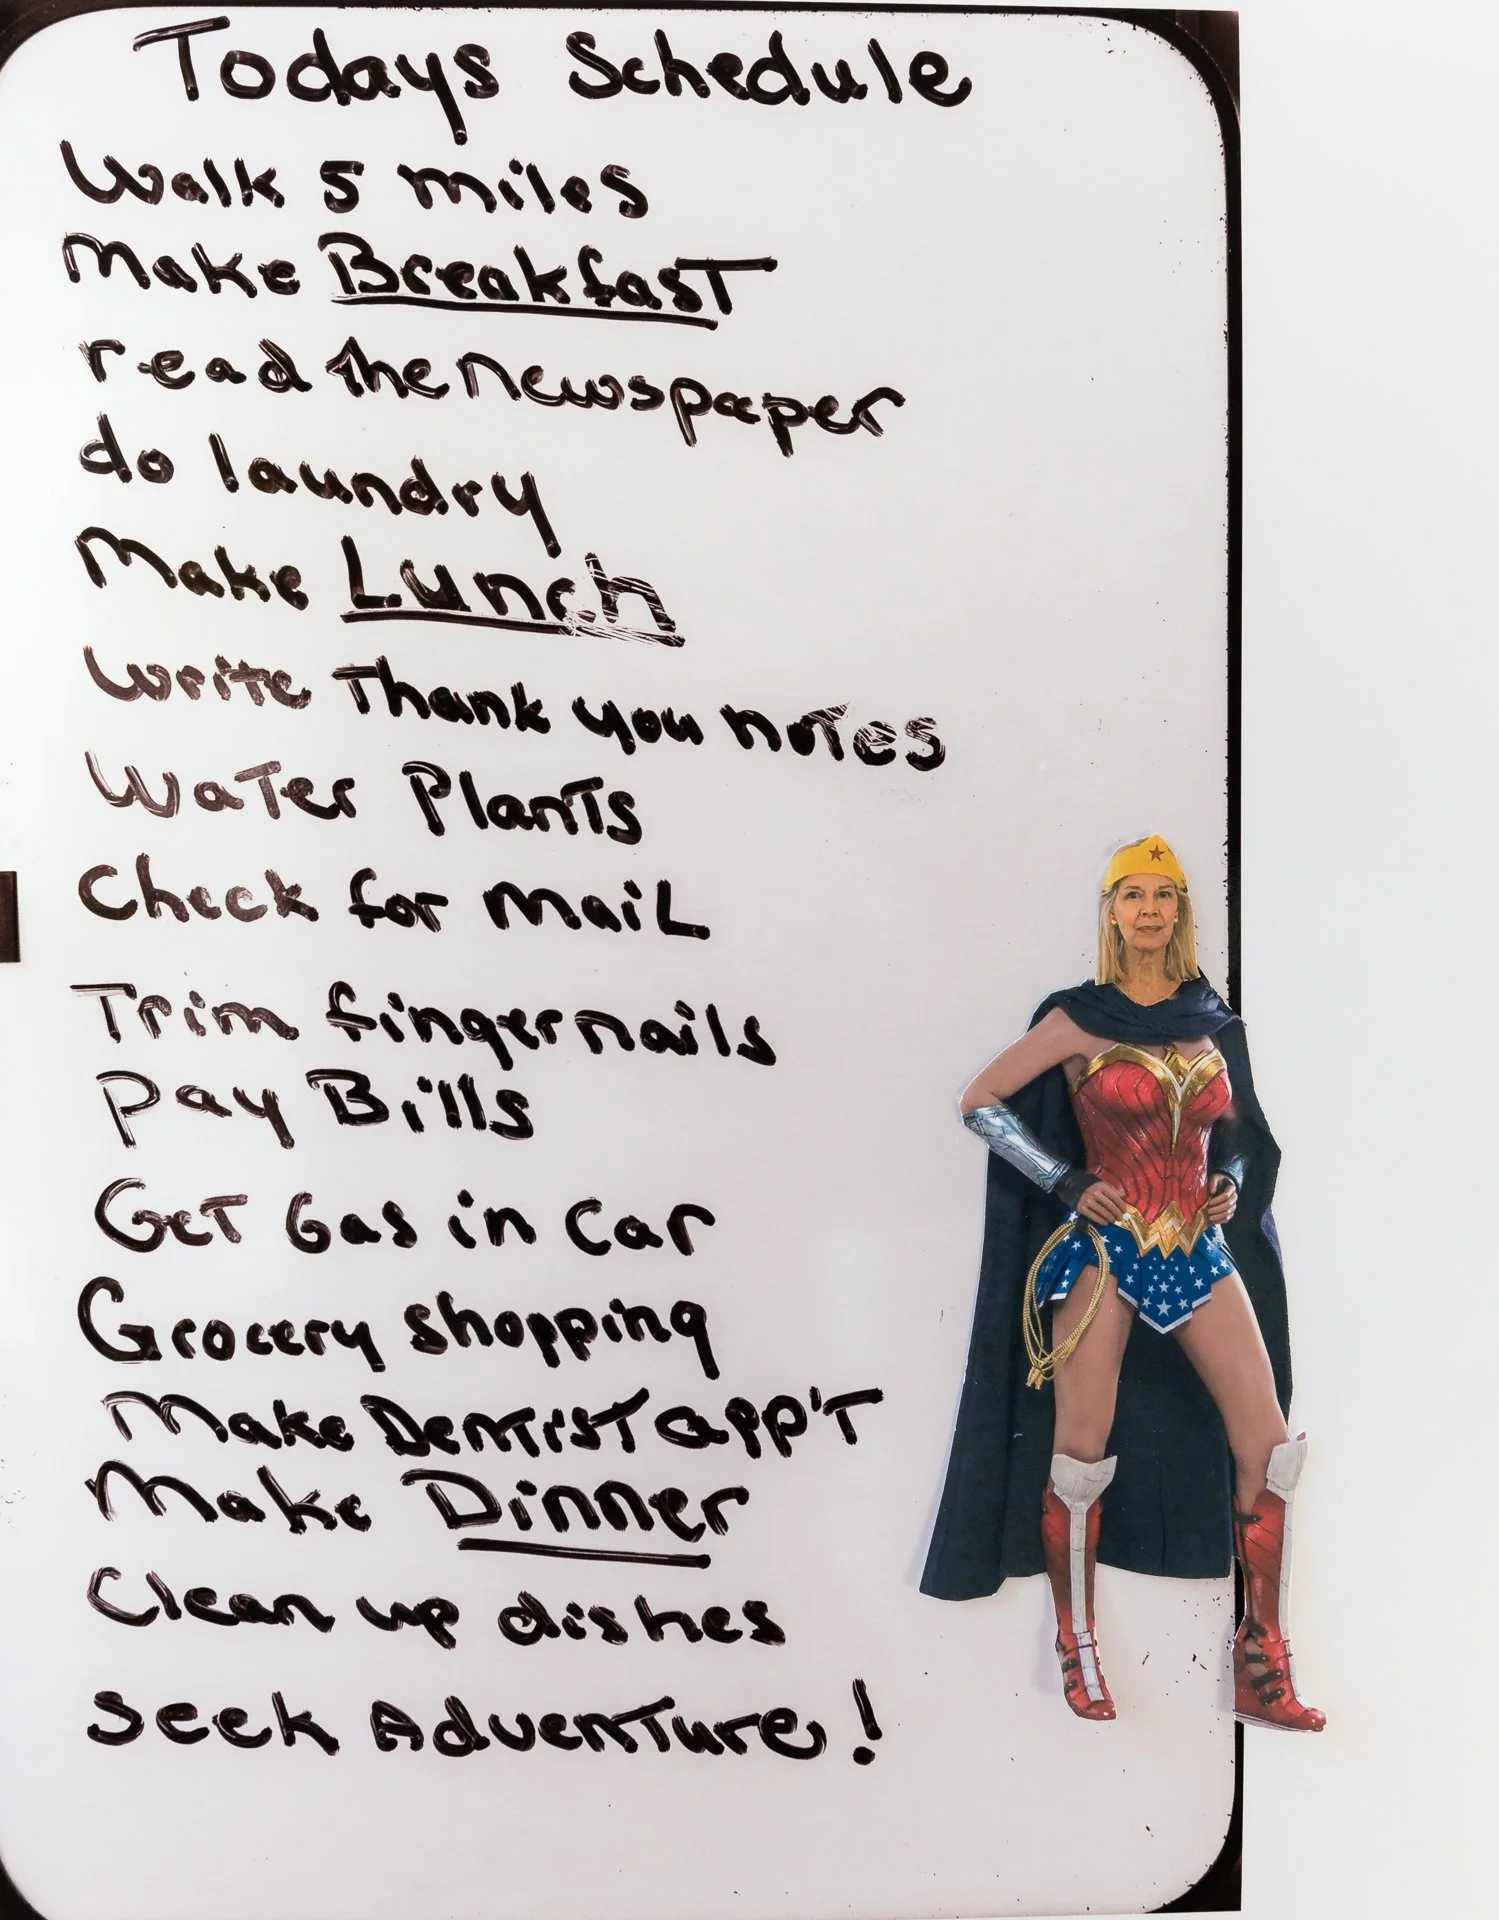 Todays Schedule
Walk 5 miles
Make Breakfast
read the newspaper
do laundry
Make Lunch
Write Thank you notes
Water Plants
Check for Mail
Trim fingernails
Pay Bills
Get Gas in Car
Grocery shopping
Make Dentist app't
Make Dinner
Clean up dishes
Seek Adventure!